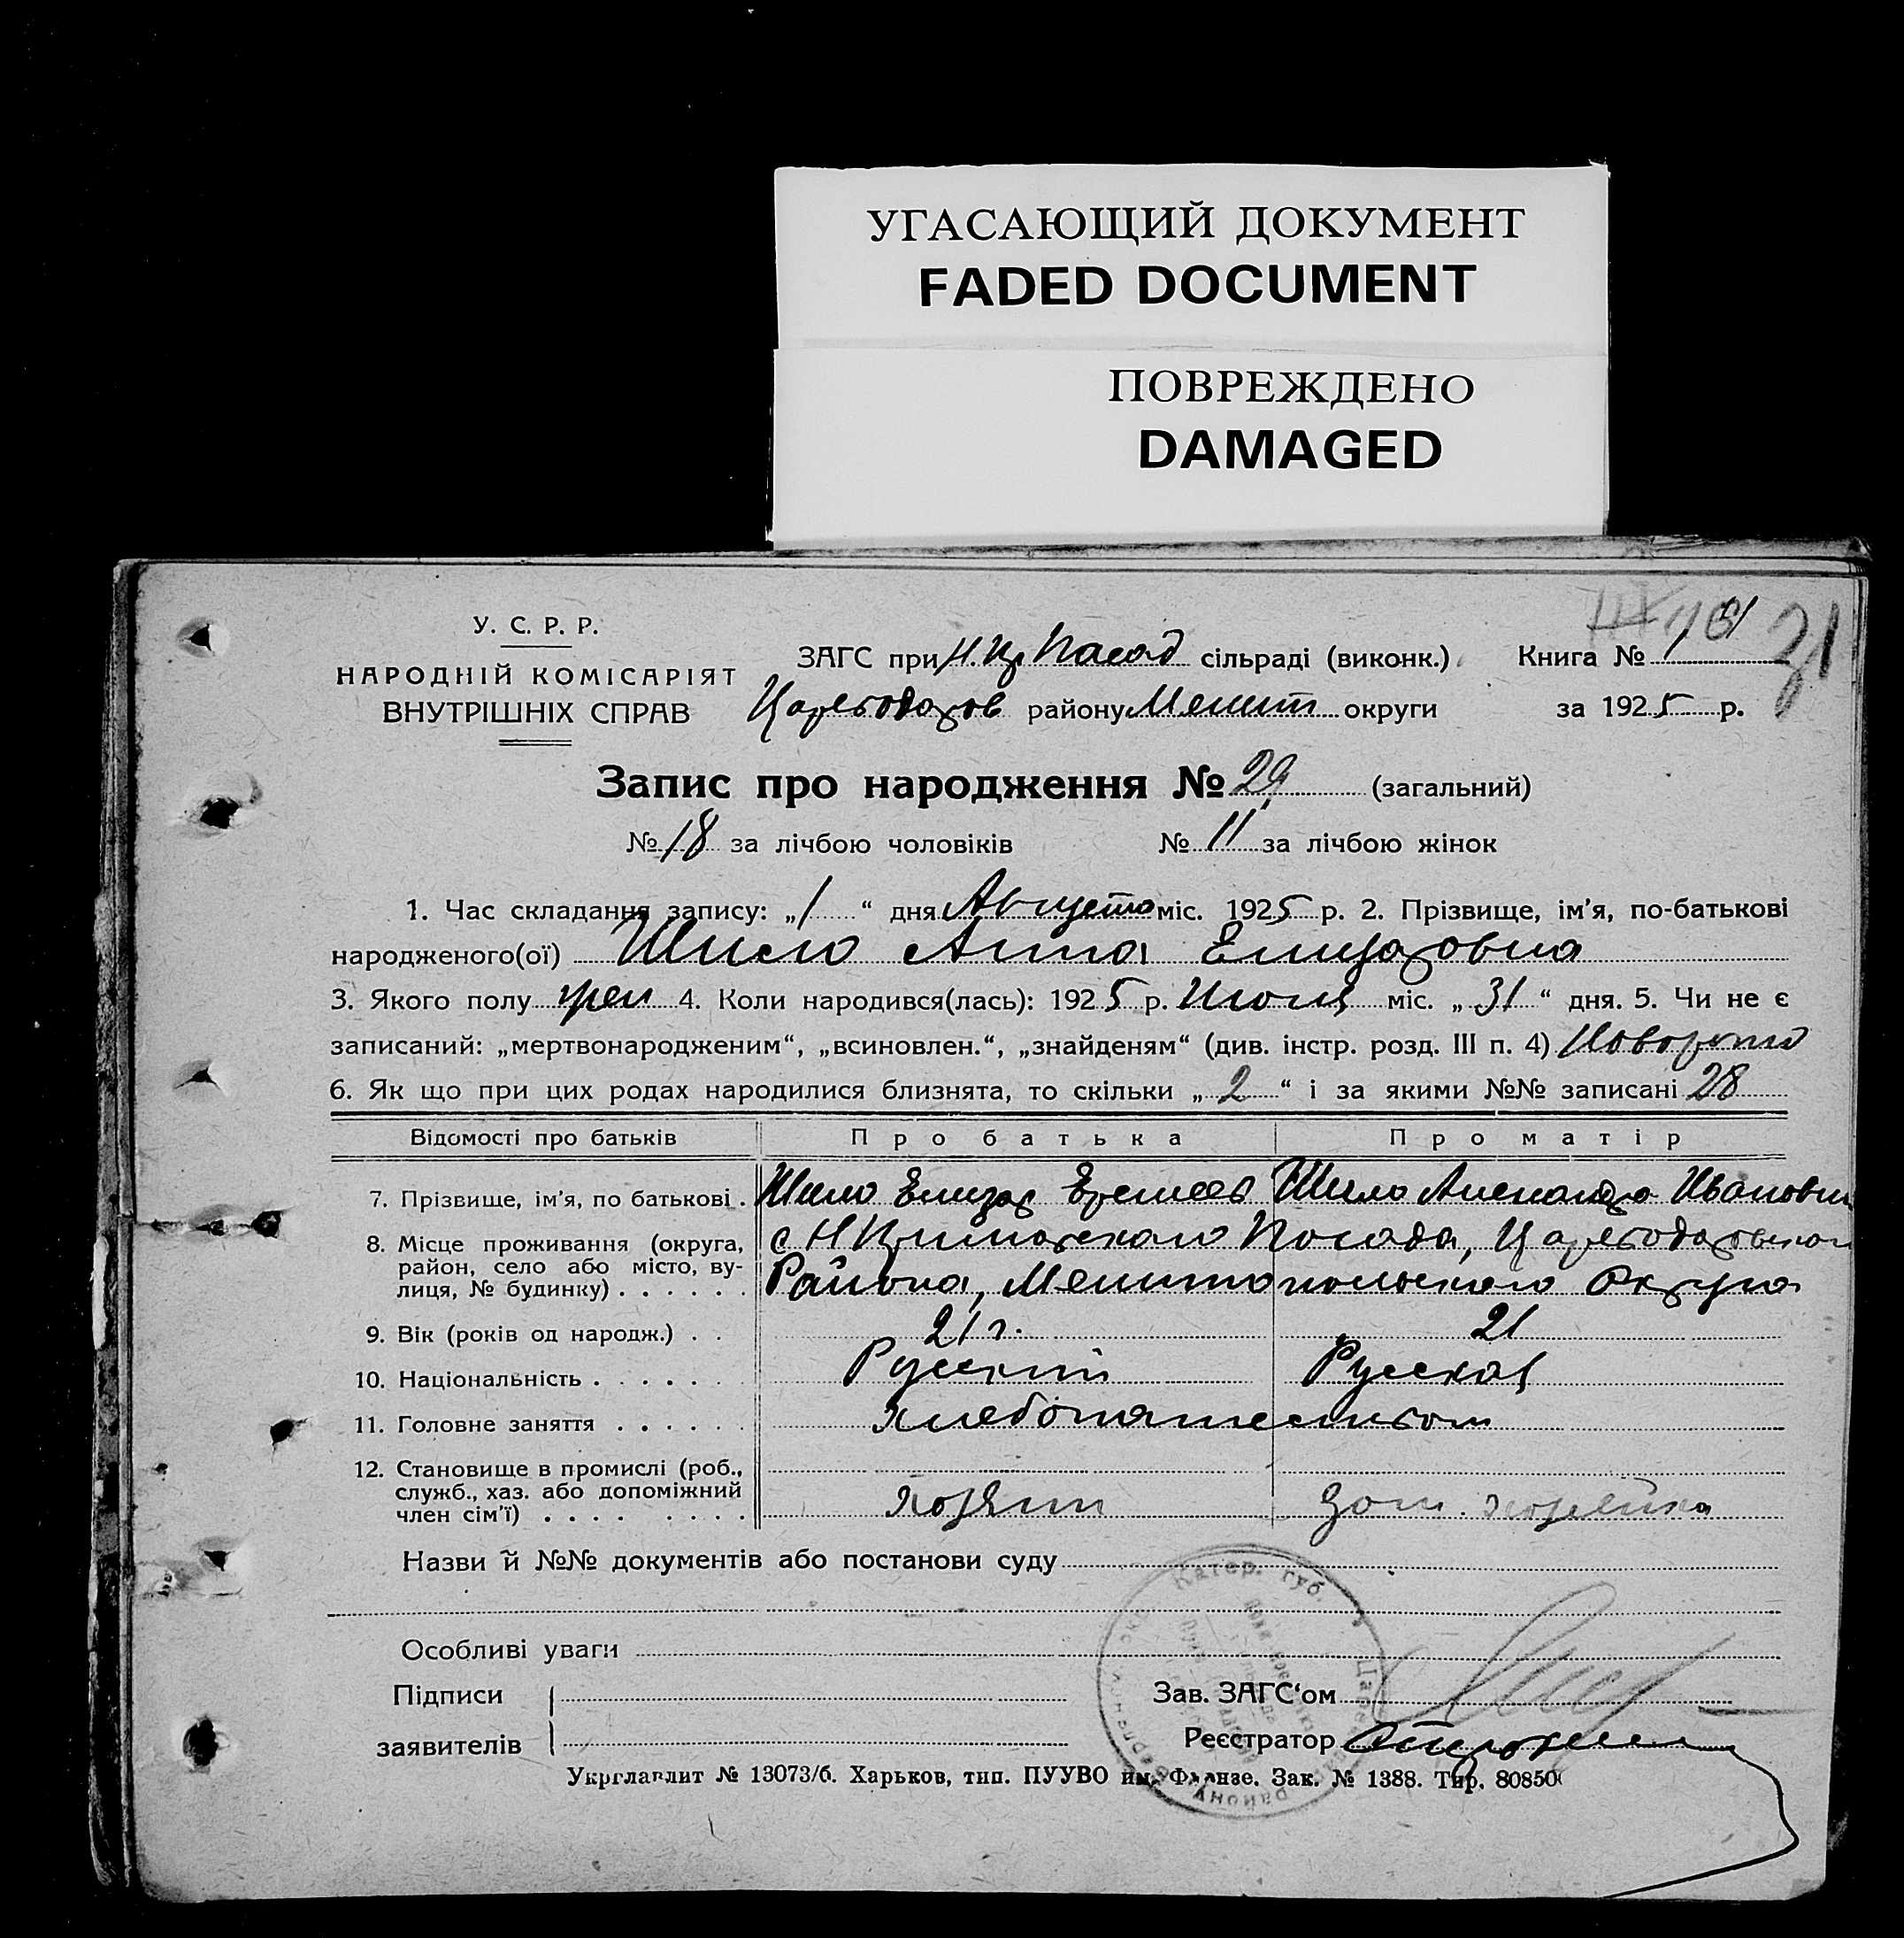 УГАСАЮЩИЙ ДОКУМЕНТ
FADED DOCUMENT
ПОВРЕЖДЕНО
DAMAGED
31
У. С. Р. Р.
НАРОДНІЙ КОМІСАРІЯТ
ВНУТРІШНІХ СПРАВ
ЗАГС при Н. Кр Пасад сільраді (виконк.) Книга № 1
Цареводаров району Мелит округи за 1925 р.
Запис про народження № 29 (загальний)
№ 18 за лічбою чоловіків № 11 за лічбою жінок
1. Час складання запису: „1“ дня Августа міс. 1925 р. 2. Прізвище, ім’я, по-батькові
народженого(ої) Шило Анна Елизаровна
3. Якого полу жен 4. Коли народився(лась): 1925 р. Июля міс. „31“ дня. 5. Чи не є
записаний: „мертвонародженим“, „всиновлен.“, „знайденям“ (див. інстр. розд. III п. 4)
6. Як що при цих родах народилися близнята, то скільки „2“ і за якими №№ записані 28
Відомості про батьків Про батька Про матір
7. Прізвище, ім’я, по батькові . Шило Елизар Еремеев Шило Александра Ивановна
8. Місце проживання (округа, район, село або місто, вулиця, № будинку) . . . . . . с Н Посада,
Района, Мелитопольского Округа
9. Вік (років од народж.) . . 21 г. 21
10. Національність . . . . . . Русский Русская
11. Головне заняття . . . . . . Хлебопашеством
12. Становище в промислі (роб., служб., хаз. або допоміжний член сім’ї) . . . . . . . . Хозяин Дом. хозяйка
Назви й №№ документів або постанови суду
Катер. губ.
Особливі уваги
Підписи
заявителів
Зав. ЗАГС‘ом
Реєстратор
Укрглавлит № 13073/б. Харьков, тип. ПУУВО им. Фрунзе. Зак. № 1388. Тир. 80850
району